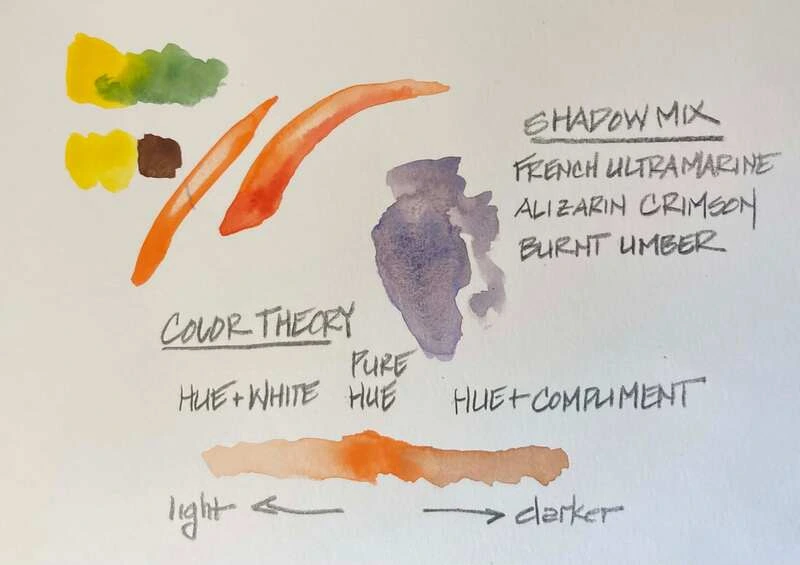 SHADOW MIX
FRENCH ULTRAMARINE
ALIZARIN CRIMSON
BURNT UMBER
COLOR THEORY
HUE + WHITE
PURE
HUE
HUE + COMPLIMENT
light
darker